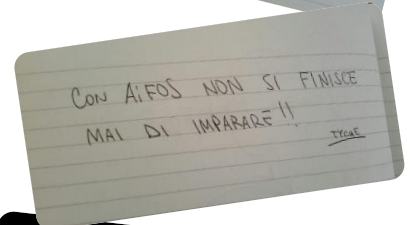 CON AiFOS NON SI FINISCE
MAI DI IMPARARE!!